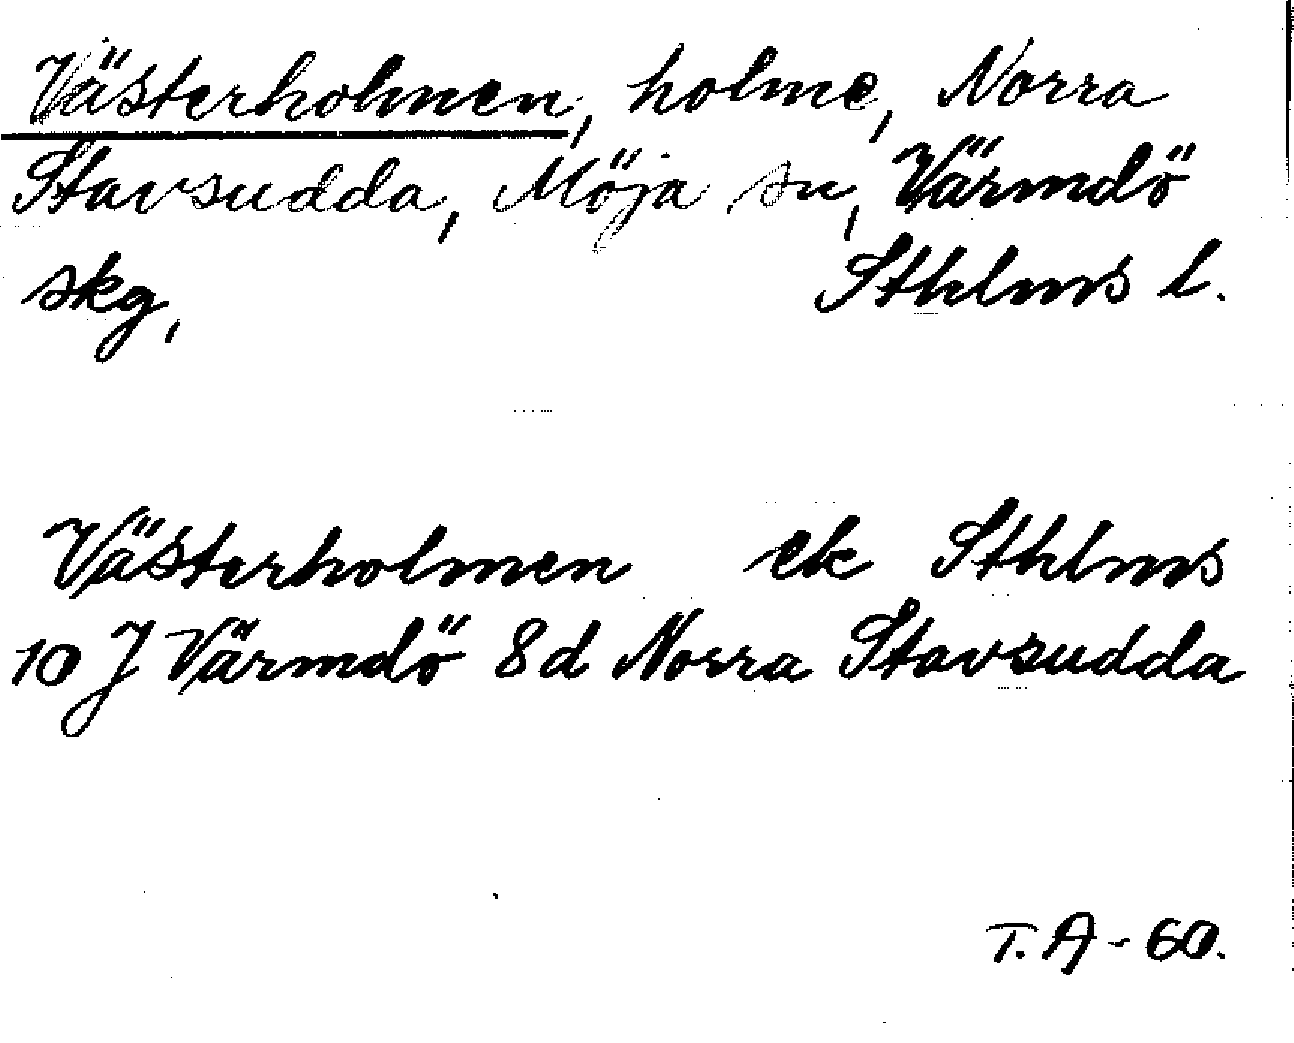 Västerholmen, holme, Norra
Stavsudda, Möja sn, Värmdö
skg, Sthlms l.
Västerholmen ek Sthlms
10 J Värmdö 8d Norra Stavsudda
T. A - 60.